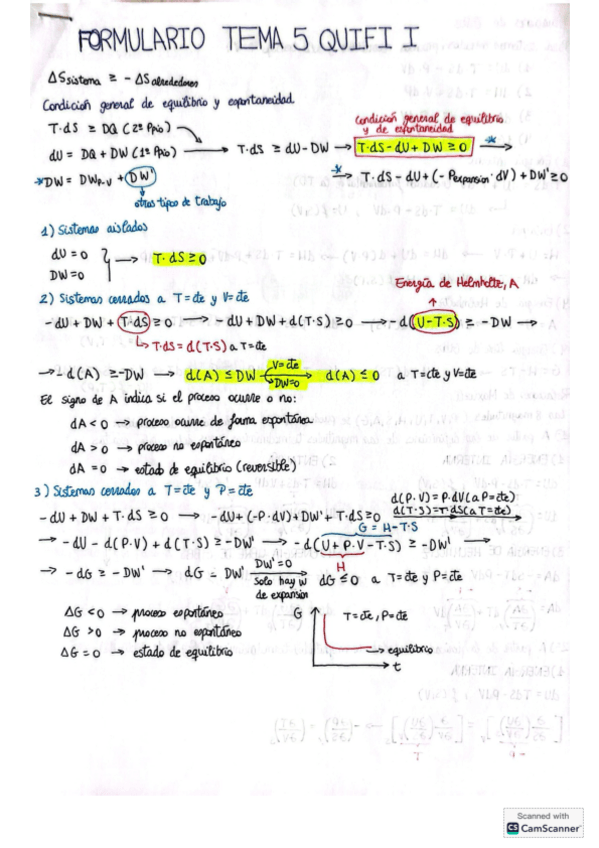 FORMULARIO TEMA 5 QUIFI I
ΔSsistema ≥ - ΔSalrededores
Condición general de equilibrio y espontaneidad
T·dS ≥ DQ (2º Ppio)
dU = DQ + DW (1º Ppio)
→ T·dS ≥ dU - DW →
Condición general de equilibrio y de espontaneidad
T·dS - dU + DW ≥ 0 *→
*DW = DWP-V + DW'
otros tipos de trabajo
*→ T·dS - dU + (- Pexpansion·dV) + DW' ≥ 0
1) Sistemas aislados
dU = 0
DW = 0
→ T·dS ≥ 0
Energía de Helmholtz, A
2) Sistemas cerrados a T=cte y V=cte
- dU + DW + T·dS ≥ 0 → - dU + DW + d(T·S) ≥ 0 → - d(U - T·S) ≥ - DW →
↳ T·dS = d(T·S) a T=cte
→ - d(A) ≥ - DW → d(A) ≤ DW V=cte DW=0 → d(A) ≤ 0 a T=cte y V=cte
El signo de A indica si el proceso ocurre o no:
dA < 0 → proceso ocurre de forma espontánea
dA > 0 → proceso no espontáneo
dA = 0 → estado de equilibrio (reversible)
3) Sistemas cerrados a T=cte y P=cte
- dU + DW + T·dS ≥ 0 → - dU + (-P·dV) + DW' + T·dS ≥ 0 d(P·V) = P·dV (a P=cte) d(T·S) = T·dS (a T=cte) →
G = H - T·S
→ - dU - d(P·V) + d(T·S) ≥ - DW' → - d(U + P·V - T·S) ≥ - DW' →
H
→ - dG ≥ - DW' → dG ≤ DW' DW'=0 Solo hay W de expansión dG ≤ 0 a T=cte y P=cte
ΔG < 0 → proceso espontáneo
ΔG > 0 → proceso no espontáneo
ΔG = 0 → estado de equilibrio
G
T=cte, P=cte
→ equilibrio
t
Scanned with
CS CamScanner